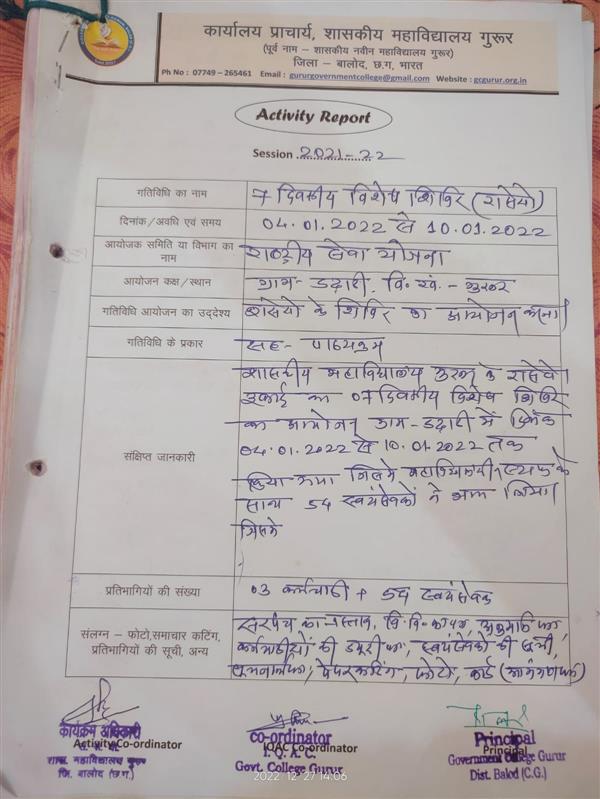 कार्यालय प्राचार्य, शासकीय महाविद्यालय गुरूर
(पूर्व नाम – शासकीय नवीन महाविद्यालय गुरूर)
जिला – बालोद, छ.ग, भारत
Ph No : 07749 - 265461 Email : gururgovernmentcollege@gmail.com Website : gcgurur.org.in
Activity Report
Session 2021-22
गतिविधि का नाम
7 दिवसीय विशेष शिविर (रासेयो)
दिनांक/अवधि एवं समय
04.01.2022 से 10.01.2022
आयोजक समिति या विभाग का
नाम
राष्ट्रीय सेवा योजना
आयोजन कक्ष/स्थान
ग्राम- डढ़ारी, वि.खं. - गुरूर
गतिविधि आयोजन का उद्देश्य
रासेयो के शिविर का आयोजन करना
गतिविधि के प्रकार
सह- पाठ्यक्रम
संक्षिप्त जानकारी
शासकीय महाविद्यालय गुरूर के रासेयो
इकाई का 07 दिवसीय विशेष शिविर
का आयोजन ग्राम- डढ़ारी में दिनाँक
04.01.2022 से 10.01.2022 तक
किया गया जिसमे महाविद्यालयीन स्टाफ के
साथ 54 स्वयंसेवकों ने भाग लिया।
जिसमे
प्रतिभागियों की संख्या
03 कर्मचारी + 54 स्वयंसेवक
संलग्न – फोटो,समाचार कटिंग,
प्रतिभागियों की सूची, अन्य
सरपंच का प्रस्ताव, वि.वि. का पत्र, अनुमति पत्र,
कर्मचारीयों की ड्यूटी पत्र, स्वयंसेवकों की सूची,
पेपर कटिंग, फोटो, कार्ड (आमंत्रण पत्र)
कार्यक्रम अधिकारी
Activity Co-ordinator
शास. महाविद्यालय गुरूर
जि. बालोद (छ.ग.)
CO-ordinator
IQAC Co-ordinator
I.Q.A.C
Govt. College Gurur
Principal
Principal
Government College Gurur
Dist. Balod (C.G.)
2022-12-27 14:06